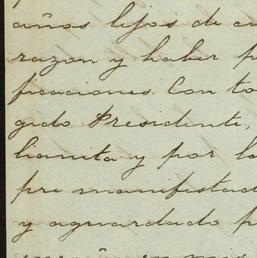 años lejos de
razon y haber p
ficaciones. Con to
gido Presidente,
lianita y por la
pre manifestad
y aguardado p